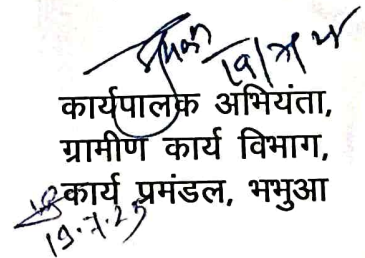 कार्यपालक अभियंता,
ग्रामीण कार्य विभाग,
कार्य प्रमंडल, भभुआ
19.7.25